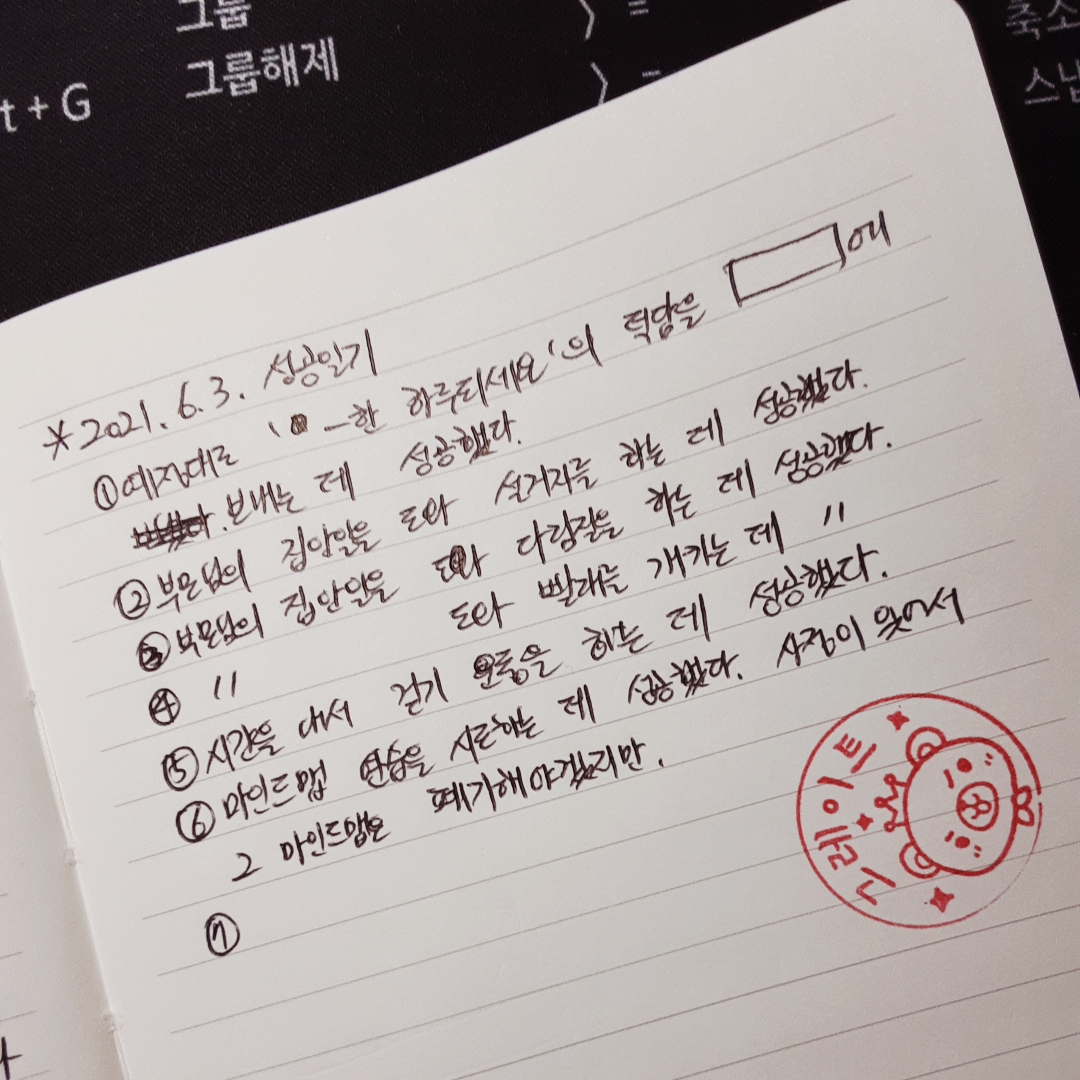 그룹 〉 =
그룹해제 〉 =
t + G
축소
스냅
*2021. 6. 3. 성공일기
①예정대로 ' _한 하루되세요'의 덕담을 에
보내는 데 성공했다.
②부모님의 집안일을 도와 설거지를 하는 데 성공했다.
③부모님의 집안일을 도와 다림질을 하는 데 성공했다.
④ 〃 도와 빨래를 개키는 데 〃
⑤시간을 내서 걷기 운동을 하는 데 성공했다.
⑥마인드맵 연습을 시도하는 데 성공했다. 사정이 있어서
그 마인드맵은 폐기해야겠지만.
⑦
그레이트